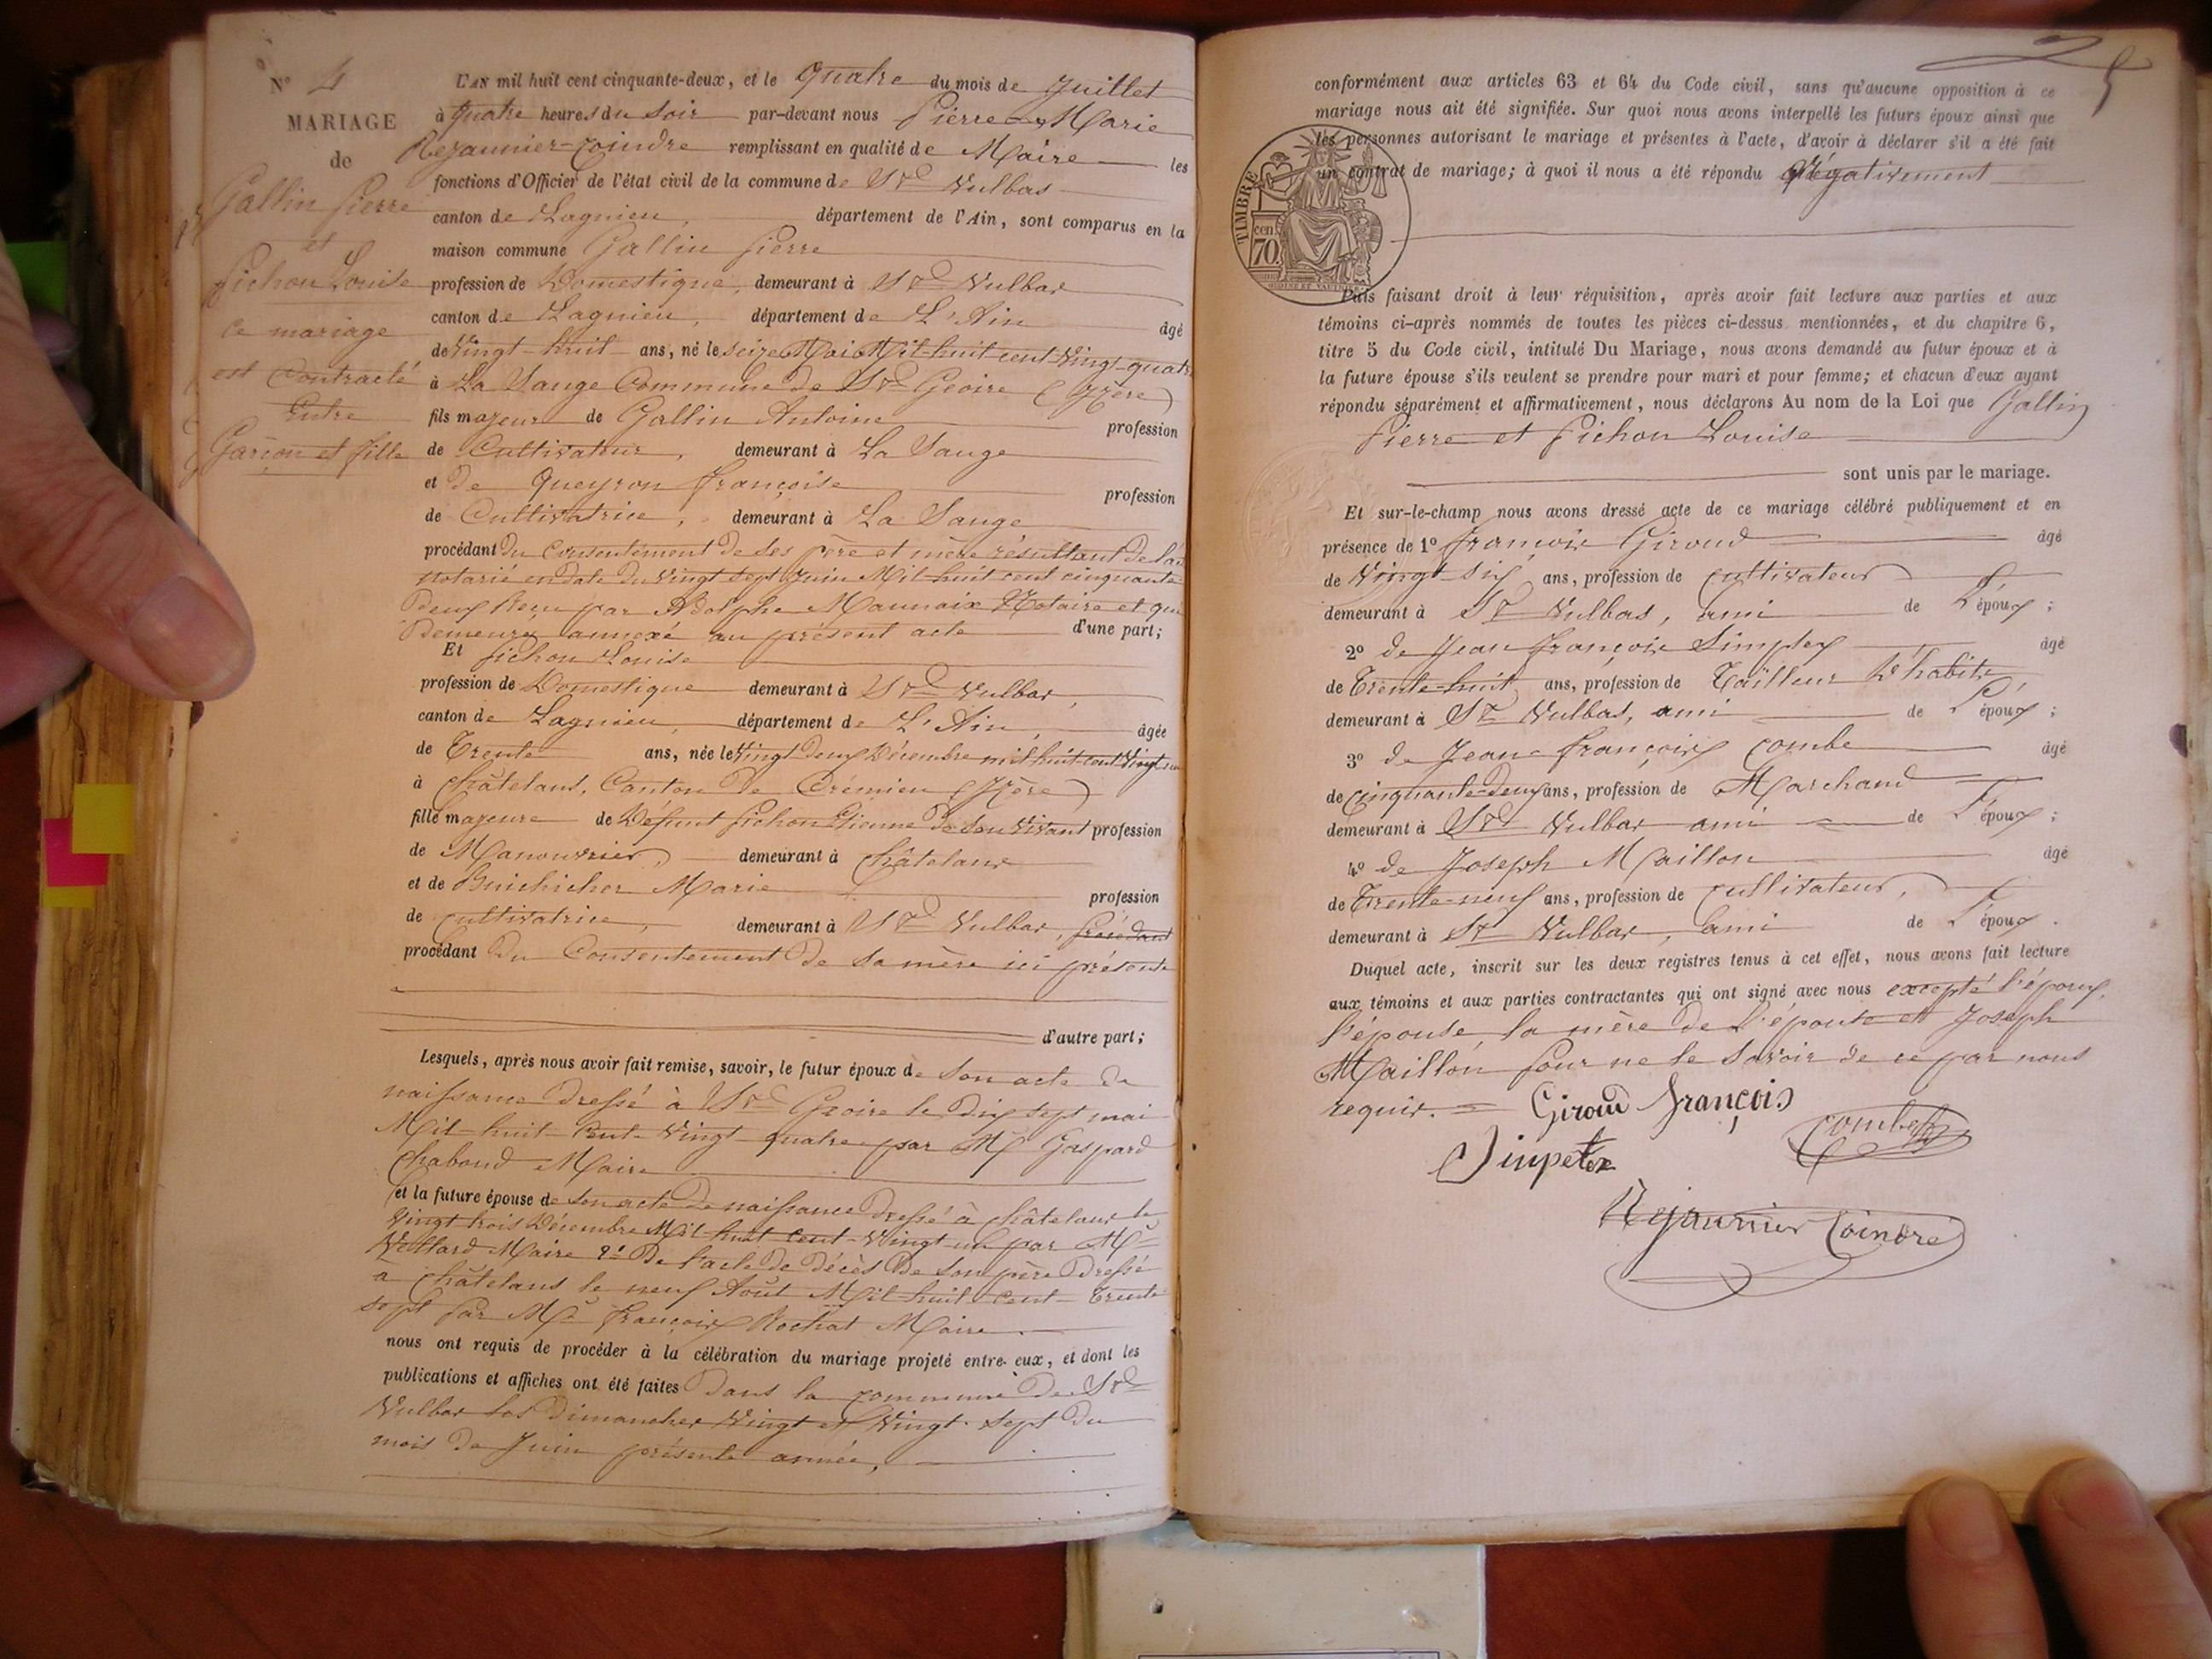 N° 4
MARIAGE
de
Gallin Pierre
et
Pichon Louise
ce mariage
est contracté
entre
Garçon et fille
L'AN mil huit cent cinquante-deux, et le quatre du mois de Juillet
à quatre heures du soir par-devant nous Pierre Marie
Rejaunier-Coindre remplissant en qualité de Maire les
fonctions d'Officier de l'état civil de la commune de St Vulbas
canton de Lagnieu, département de l'Ain, sont comparus en la
maison commune Gallin Pierre
profession de Domestique, demeurant à St Vulbas
canton de Lagnieu, département de L'Ain âgé
de Vingt-huit ans, né le seize Mai Mil-huit cent Vingt-quatre
à La Sauge Commune de St Geoire (Izère)
fils majeur de Gallin Antoine profession
de Cultivateur, demeurant à La Sauge
et de Queyron françoise profession
de Cultivatrice, demeurant à La Sauge
procédant du Consentement de ses père et mère résultant de l'acte
notarié en date du Vingt sept Juin Mil-huit cent cinquante
Deux Reçu par Adolphe Notaire et qui
Demeure annexé au présent acte d'une part;
Et Pichon Louise
profession de Domestique demeurant à St Vulbas,
canton de Lagnieu, département de L'Ain, âgée
de Trente ans, née le Vingt Deux Décembre mil huit cent Vingt un
à Châtelans, Canton de Crémieu (Izère)
fille majeure de Défunt Pichon Etienne de son Vivant profession
de Manouvrier, demeurant à Châtelans
et de Marie profession
de cultivatrice, demeurant à St Vulbas, Procédant
procédant Du Consentement De sa mère ici présente
d'autre part;
Lesquels, après nous avoir fait remise, savoir, le futur époux de son acte de
naissance Dressé à St Geoire le Dix sept mai
Mil-huit-Cent-Vingt-quatre par Mr Gaspard
Chaboud Maire
et la future épouse de son acte de naissance Dressé à Châtelans le
Vingt trois Décembre Mil-huit Cent-Vingt-un par Mr
Vellard Maire 2° De l'acte de décès De son père Dressé
à Châtelans le neuf Août Mil-huit Cent-Trente
sept par Mr françois Rochat Maire
nous ont requis de procéder à la célébration du mariage projeté entre eux, et dont les
publications et affiches ont été faites Dans la commune De St
Vulbas les Dimanches Vingt et Vingt-sept Du
mois de Juin présente année,
conformément aux articles 63 et 64 du Code civil, sans qu'aucune opposition à ce
mariage nous ait été signifiée. Sur quoi nous avons interpellé les futurs époux ainsi que
les personnes autorisant le mariage et présentes à l'acte, d'avoir à déclarer s'il a été fait
un contrat de mariage; à quoi il nous a été répondu Négativement
TIMBRE
cen
70.
Puis faisant droit à leur réquisition, après avoir fait lecture aux parties et aux
témoins ci-après nommés de toutes les pièces ci-dessus mentionnées, et du chapitre 6,
titre 5 du Code civil, intitulé Du Mariage, nous avons demandé au futur époux et à
la future épouse s'ils veulent se prendre pour mari et pour femme; et chacun d'eux ayant
répondu séparément et affirmativement, nous déclarons Au nom de la Loi que Gallin
Pierre et Pichon Louise
sont unis par le mariage.
Et sur-le-champ nous avons dressé acte de ce mariage célébré publiquement et en
présence de 1° françois Giroud âgé
de Vingt-six ans, profession de cultivateur
demeurant à St Vulbas, ami de L'époux;
2° de Jean françois Simpley âgé
de Trente-huit ans, profession de Tailleur D'habits
demeurant à St Vulbas, ami de L'époux;
3° de Jean françois Combe âgé
de cinquante-Deux ans, profession de Marchand
demeurant à St Vulbas ami de L'époux;
4° de Joseph Maillon âgé
de Trente-neuf ans, profession de cultivateur,
demeurant à St Vulbas, ami de L'époux.
Duquel acte, inscrit sur les deux registres tenus à cet effet, nous avons fait lecture
aux témoins et aux parties contractantes qui ont signé avec nous excepté l'époux,
l'épouse, la mère de l'épouse et Joseph
Maillon pour ne le savoir de ce par nous
requis.
Giroud françois
combe
Simpelex
Rejaunier Coindre